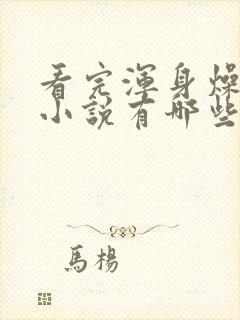 看完渾身燥
小說有哪些
馬楊